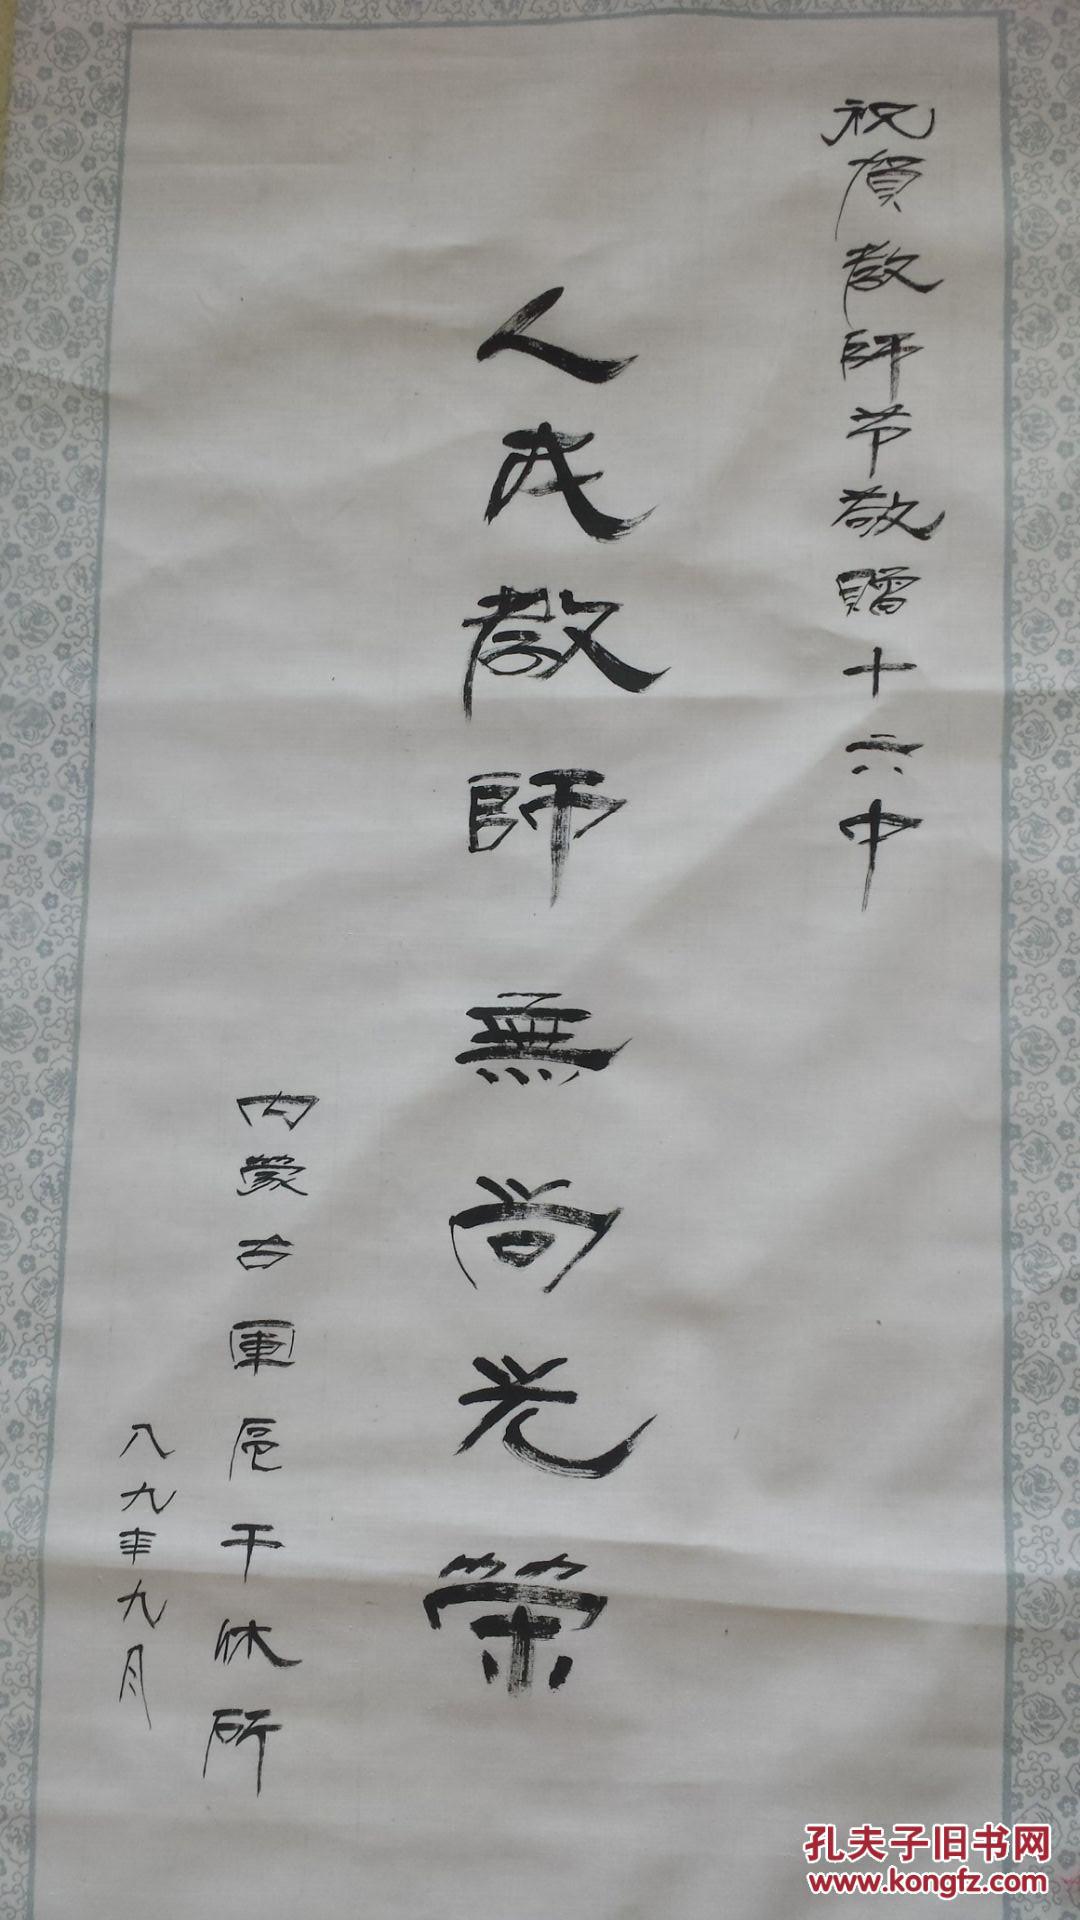 祝賀教師节敬贈十六中
人民教師無尚光榮
内蒙古軍区干休所
八九年九月
孔夫子旧书网
www.kongfz.com